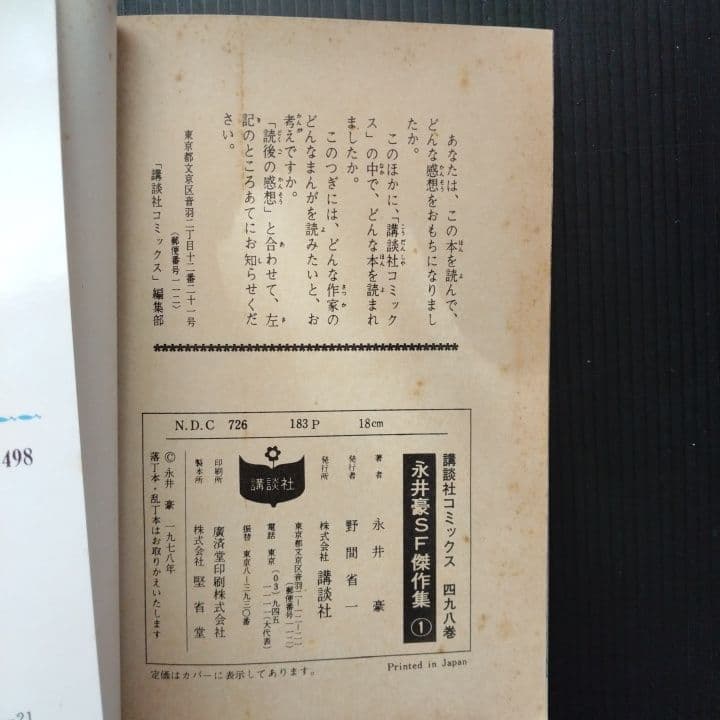 あなたは、この本を読んで、
どんな感想をおもちになりまし
たか。
このほかに、「講談社コミック
ス」の中で、どんな本を読まれ
ましたか。
このつぎには、どんな作家の
どんなまんがを読みたいと、お
考えですか。
「読後の感想」と合わせて、左
記のところあてにお知らせくだ
さい。
東京都文京区音羽二丁目十二番二十一号
(郵便番号一一二)
「講談社コミックス」編集部
N.D.C 726 183P 18cm
講談社コミックス 四九八巻
永井豪SF傑作集 ①
著者 永井豪
発行者 野間省一
発行所 株式会社 講談社
東京都文京区音羽二-一二-二一
(郵便番号一一二)
電話 東京(03)九四五
一一一一(大代表)
振替 東京八-三九三〇番
講談社
印刷所 廣済堂印刷株式会社
製本所 株式会社 堅省堂
© 永井 豪 一九七八年
落丁本・乱丁本はお取りかえいたします
定価はカバーに表示してあります。
Printed in Japan
498
21